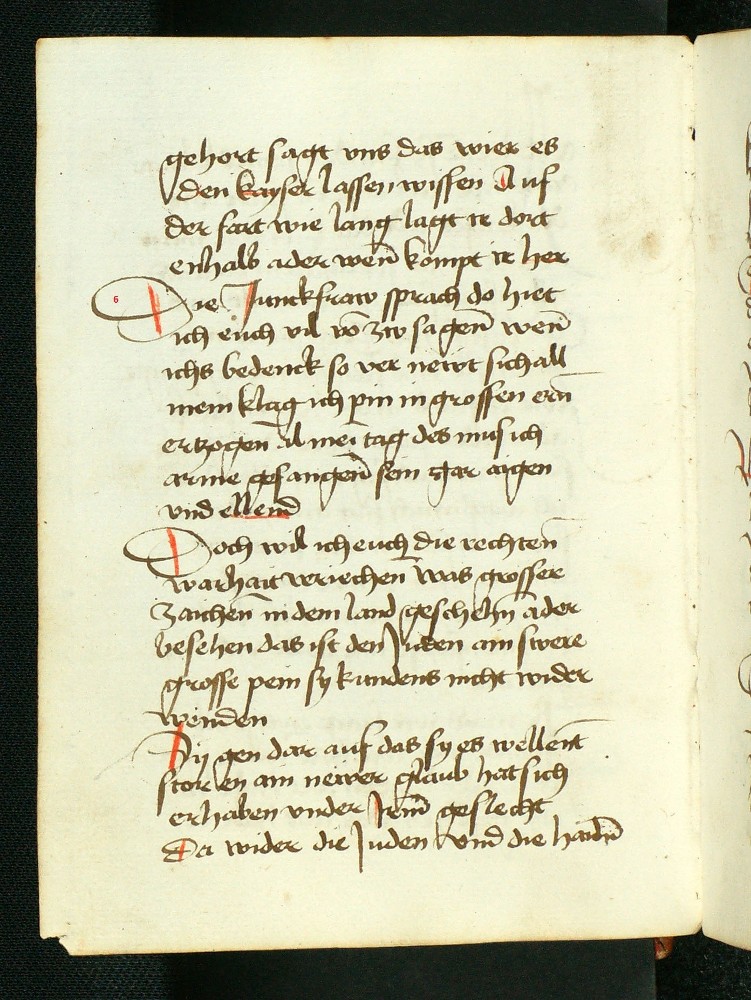 gehort sagt vns das wier es
den kayser lassen wissen Auf
der fart wie lang lagt ir dort
enhalb ader wen̄ kompt ir her
6 Die Junckfraw sprach do hiet
ich euch vil võ zw sagen̄ wen̄
ichs bedenck so ver newt sich all
mein klag ich pin in grossen ern̄
erzogen̄ al mei tag des mus ich
arme gefangen̄ sein gar aigen
vnd ellend
Doch wil ich euch die rechten̄
warhait veriechen was grosser
zaichen̄ in dem land geschehn̄ ader
besehen das ist den Juden ain swere
grosse pein sy kundens nicht wider
wenden
Sy gen dar auf das sy es wellent
storen ain newer glaub hat sich
erhaben vnder Irm̄ geslecht
Da wider die Juden vnd die haidn̄